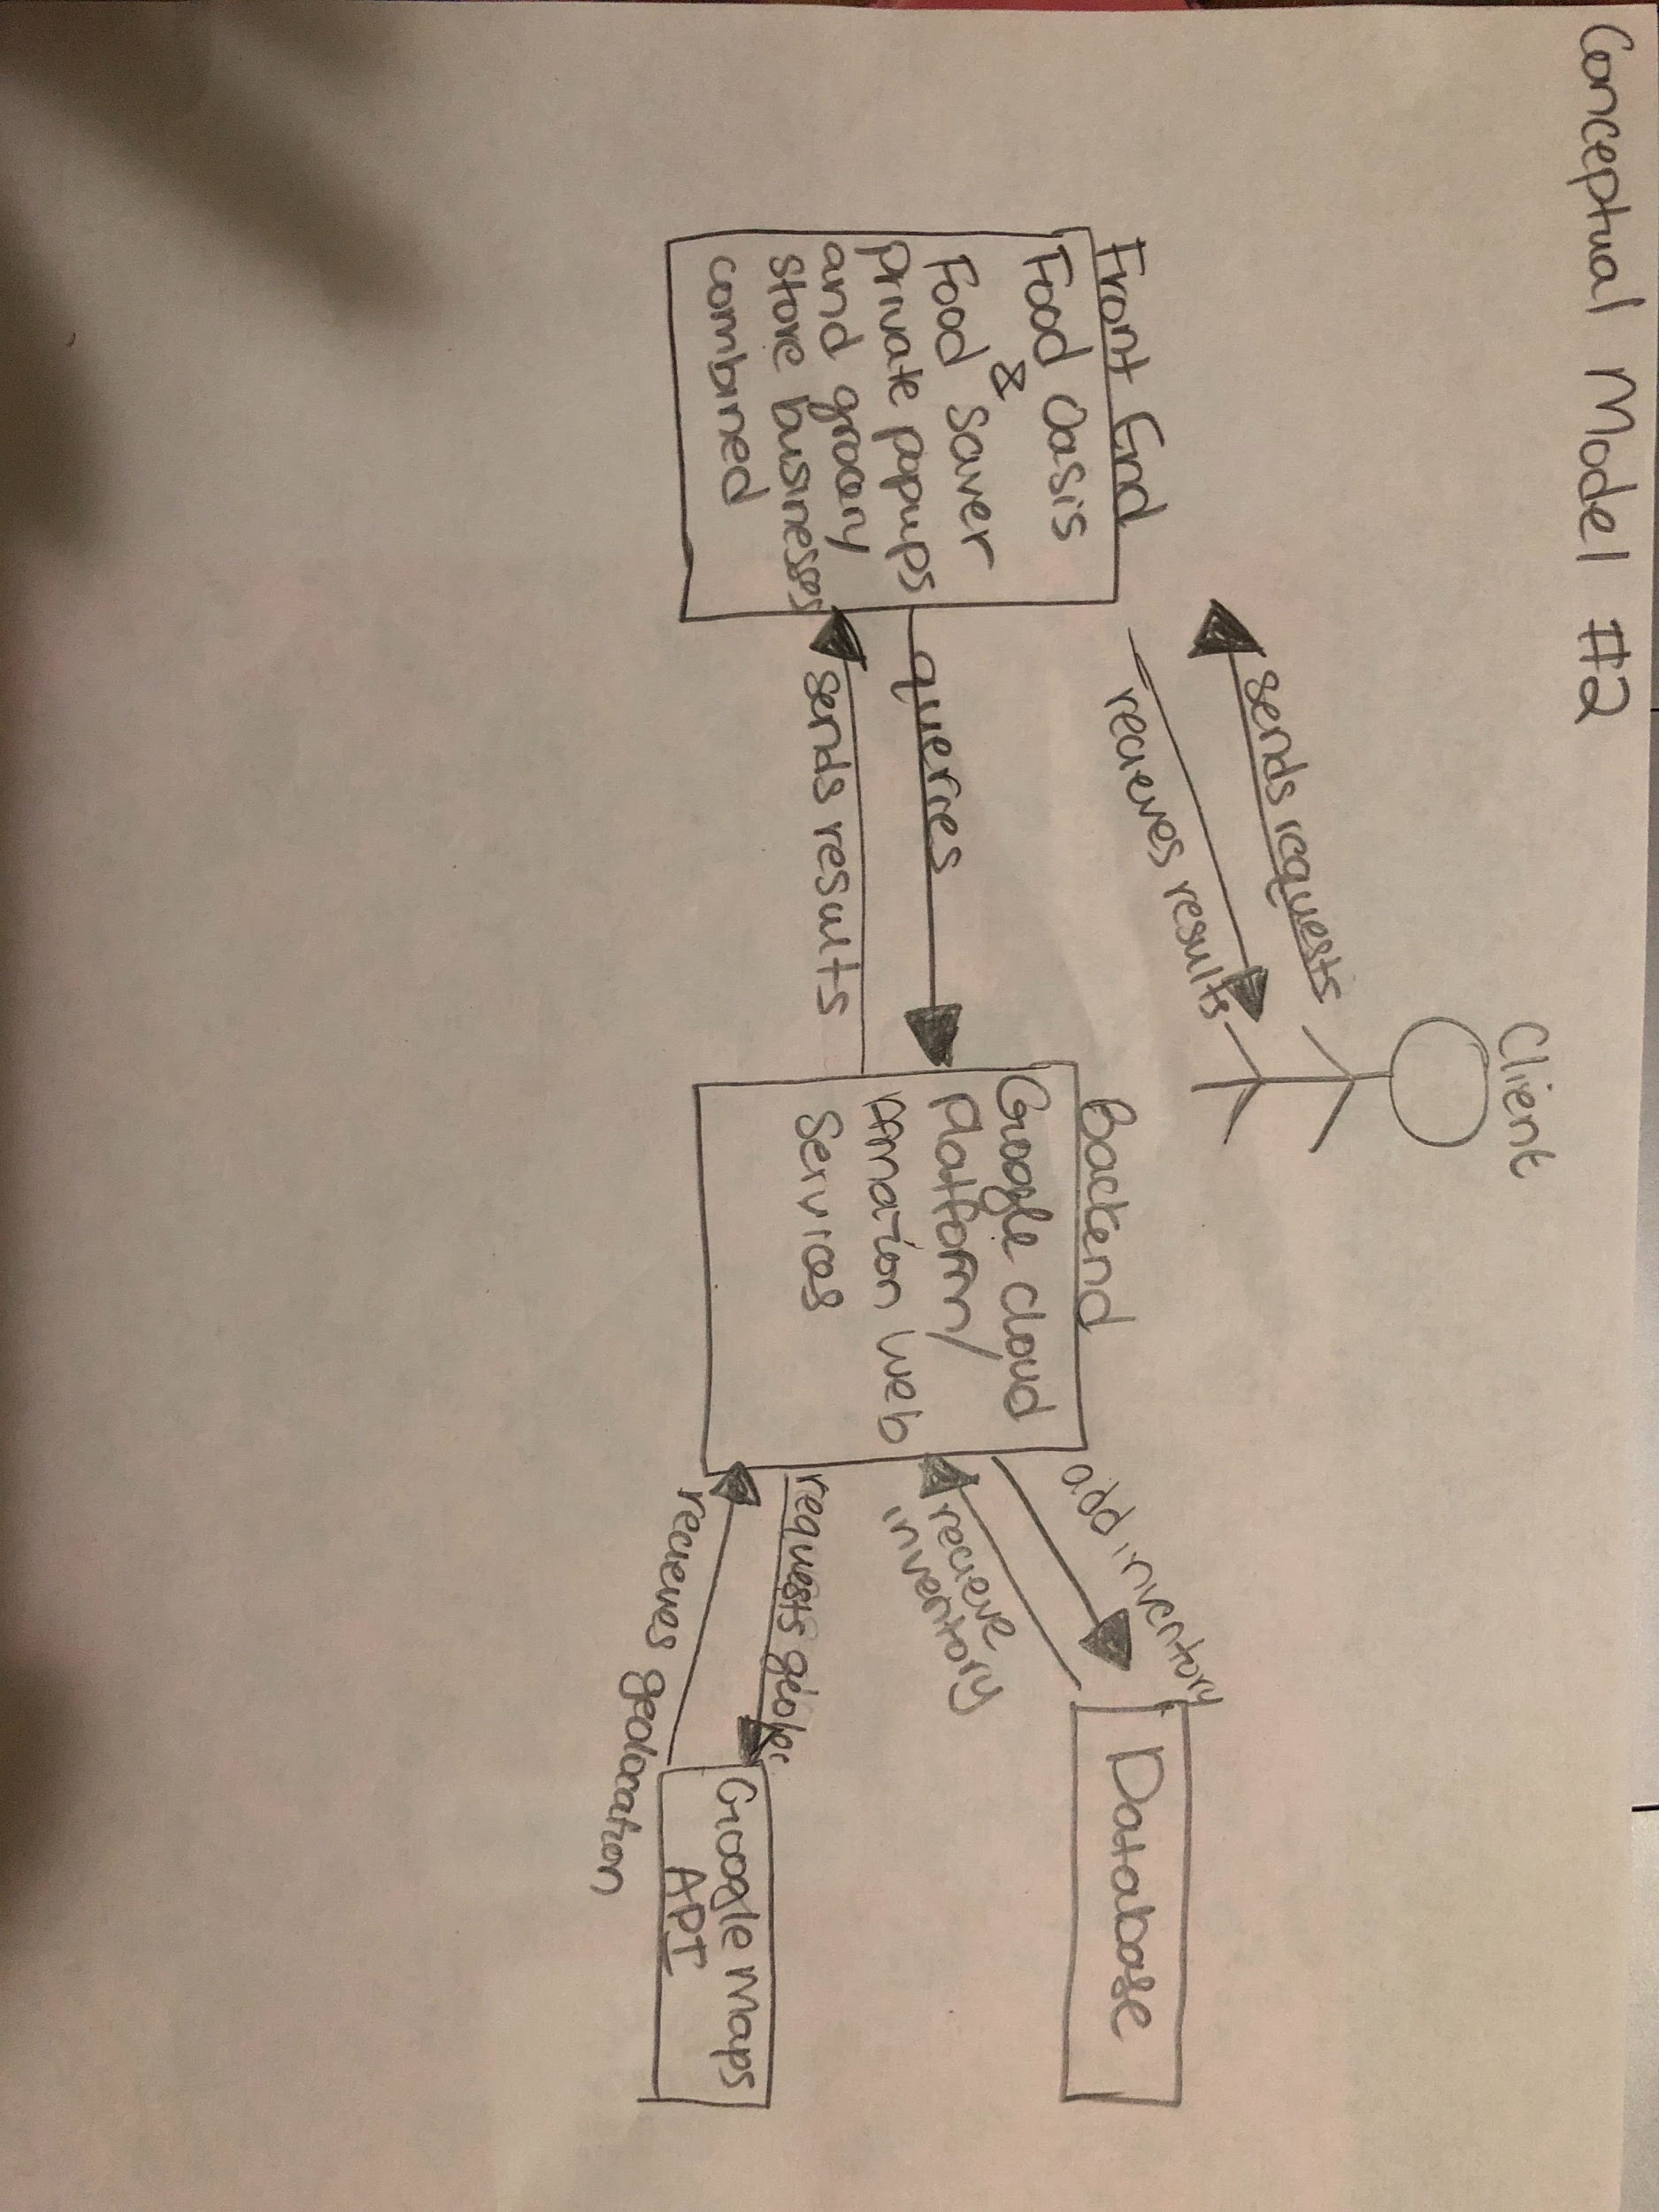 Conceptual Model #2
Client
sends requests
recieves results
Front End
Food Oasis
&
Food Saver
private popups
and grocery
store businesses
combined
queries
sends results
Backend
Google cloud
Platform/
Amazon web
Services
add inventory
recieve
inventory
Database
requests geoloc
recieves geolocation
Google Maps
API